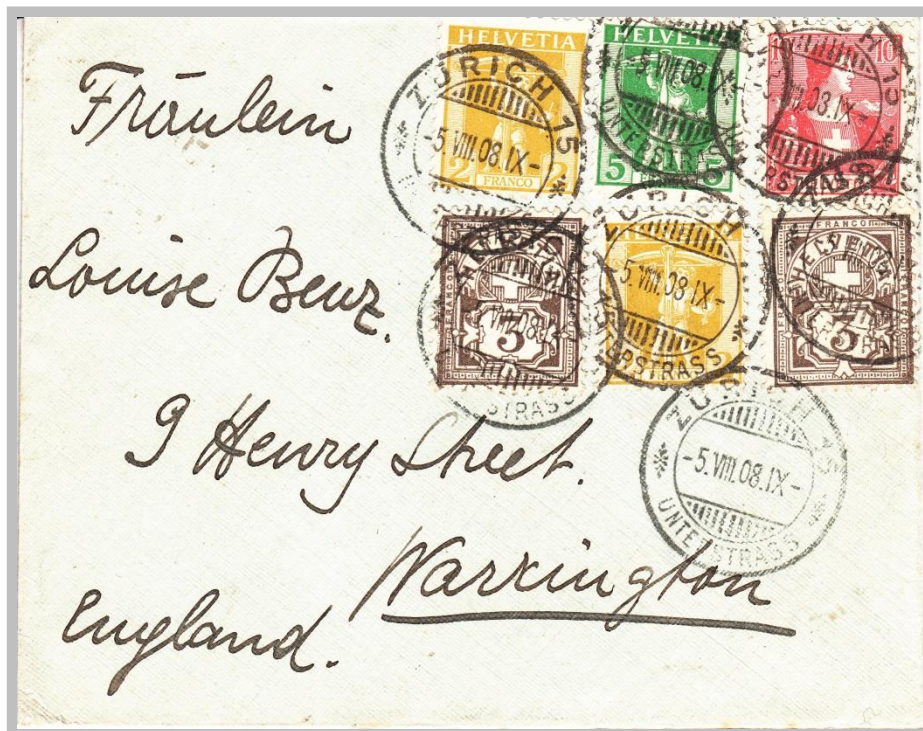 Fräulein
Louise Benz.
9 Henry Street.
Warrington
England.
HELVETIA
2 2
FRANCO
HELVETIA
5 5
10 10
FRANCO
5
FRANCO
5
ZÜRICH 15
-5.VIII.08.IX-
UNTERSTRASS
ZÜRICH 15
-5.VIII.08.IX-
-5.VIII.08.IX-
UNTERSTRASS
-5.VIII.08.IX-